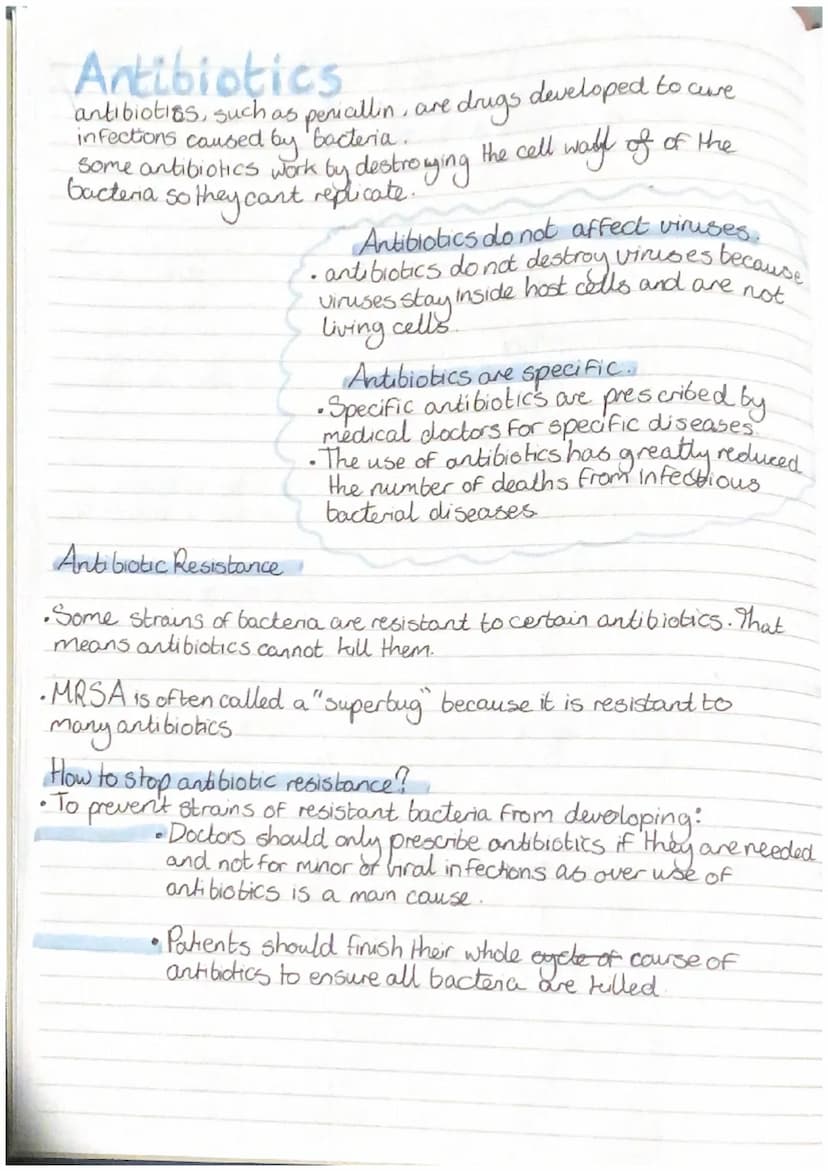 Antibiotics
antibiotiss, such as peniallin, are drugs developed to cure
infections caused by bacteria.
some antibiotics work by destroying the cell wall of of the
bacteria so they cant replicate.
Antibiotics do not affect viruses.
• antibiotics do not destroy viruses because
viruses stay inside host cells and are not
living cells.
Antibiotics are specific.
• Specific antibiotics are prescribed by
medical doctors for specific diseases.
• The use of antibiotics has greatly reduced
the number of deaths from infectious
bacterial diseases
Antibiotic Resistance
• Some strains of bacteria are resistant to certain antibiotics. That
means antibiotics cannot kill them.
• MRSA is often called a "superbug" because it is resistant to
many antibiotics
How to stop antibiotic resistance?
• To prevent strains of resistant bacteria from developing:
• Doctors should only prescribe antibiotics if they are needed
and not for minor or viral infections as over use of
antibiotics is a main cause.
• Patients should finish their whole cycle of course of
antibiotics to ensure all bacteria are killed.